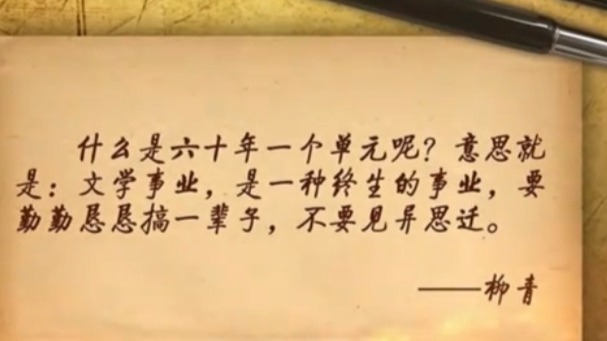 什么是六十年一个单元呢？意思就
是：文学事业，是一种终生的事业，要
勤勤恳恳搞一辈子，不要见异思迁。
——柳青